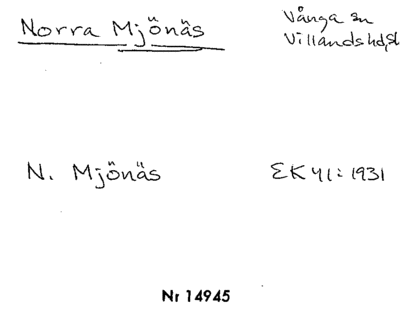 Norra Mjönäs
Vånga sn
Villandshd, Sk
N. Mjönäs
EK 41: 1931
Nr 14945